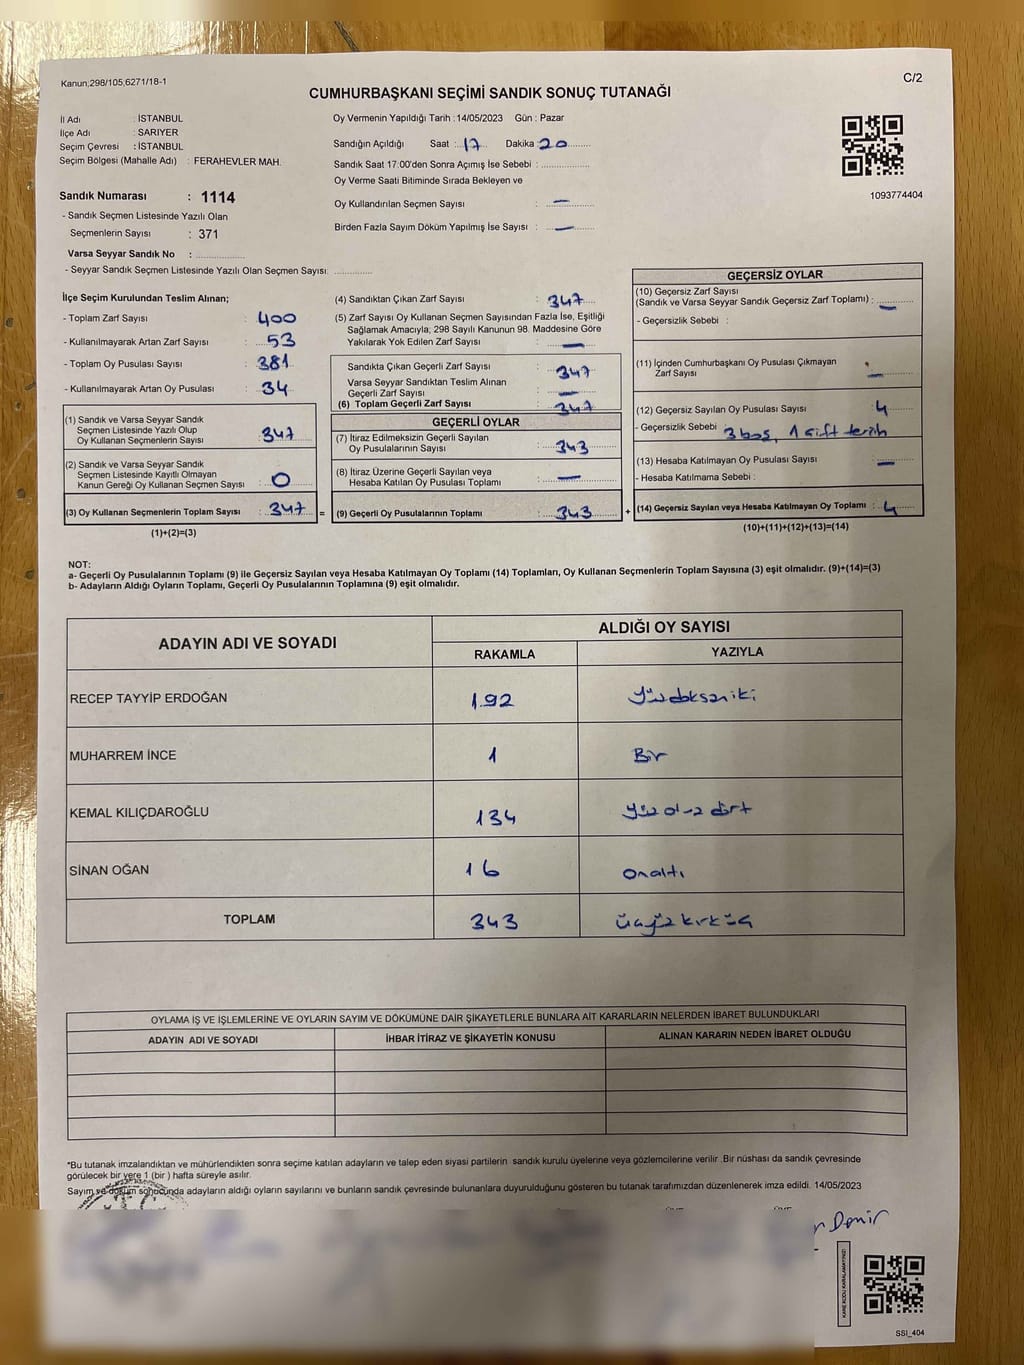 Kanun;298/105,6271/18-1
C/2
CUMHURBAŞKANI SEÇİMİ SANDIK SONUÇ TUTANAĞI
İl Adı : İSTANBUL
İlçe Adı : SARIYER
Seçim Çevresi : İSTANBUL
Seçim Bölgesi (Mahalle Adı) : FERAHEVLER MAH.
Oy Vermenin Yapıldığı Tarih : 14/05/2023 Gün : Pazar
Sandığın Açıldığı Saat : 17 Dakika : 20
Sandık Saat 17:00'den Sonra Açımış İse Sebebi :
Oy Verme Saati Bitiminde Sırada Bekleyen ve
Oy Kullandırılan Seçmen Sayısı : —
Birden Fazla Sayım Döküm Yapılmış İse Sayısı : —
1093774404
Sandık Numarası : 1114
- Sandık Seçmen Listesinde Yazılı Olan
Seçmenlerin Sayısı : 371
Varsa Seyyar Sandık No :
- Seyyar Sandık Seçmen Listesinde Yazılı Olan Seçmen Sayısı:
İlçe Seçim Kurulundan Teslim Alınan;
- Toplam Zarf Sayısı : 400
- Kullanılmayarak Artan Zarf Sayısı : 53
- Toplam Oy Pusulası Sayısı : 381
- Kullanılmayarak Artan Oy Pusulası : 34
(1) Sandık ve Varsa Seyyar Sandık
Seçmen Listesinde Yazılı Olup
Oy Kullanan Seçmenlerin Sayısı : 347
(2) Sandık ve Varsa Seyyar Sandık
Seçmen Listesinde Kayıtlı Olmayan
Kanun Gereği Oy Kullanan Seçmen Sayısı : 0
(3) Oy Kullanan Seçmenlerin Toplam Sayısı : 347 =
(1)+(2)=(3)
(4) Sandıktan Çıkan Zarf Sayısı : 347
(5) Zarf Sayısı Oy Kullanan Seçmen Sayısından Fazla İse, Eşitliği
Sağlamak Amacıyla; 298 Sayılı Kanunun 98. Maddesine Göre
Yakılarak Yok Edilen Zarf Sayısı : —
Sandıkta Çıkan Geçerli Zarf Sayısı : 347
Varsa Seyyar Sandıktan Teslim Alınan
Geçerli Zarf Sayısı : —
(6) Toplam Geçerli Zarf Sayısı : 347
GEÇERLİ OYLAR
(7) İtiraz Edilmeksizin Geçerli Sayılan
Oy Pusulalarının Sayısı : 343
(8) İtiraz Üzerine Geçerli Sayılan veya
Hesaba Katılan Oy Pusulası Toplamı : —
(9) Geçerli Oy Pusulalarının Toplamı : 343 +
GEÇERSİZ OYLAR
(10) Geçersiz Zarf Sayısı
(Sandık ve Varsa Seyyar Sandık Geçersiz Zarf Toplamı) : —
- Geçersizlik Sebebi :
(11) İçinden Cumhurbaşkanı Oy Pusulası Çıkmayan
Zarf Sayısı : —
(12) Geçersiz Sayılan Oy Pusulası Sayısı : 4
- Geçersizlik Sebebi : 3 boş, 1 çift tercih
(13) Hesaba Katılmayan Oy Pusulası Sayısı : —
- Hesaba Katılmama Sebebi :
(14) Geçersiz Sayılan veya Hesaba Katılmayan Oy Toplamı : 4
(10)+(11)+(12)+(13)=(14)
NOT:
a- Geçerli Oy Pusulalarının Toplamı (9) ile Geçersiz Sayılan veya Hesaba Katılmayan Oy Toplamı (14) Toplamları, Oy Kullanan Seçmenlerin Toplam Sayısına (3) eşit olmalıdır. (9)+(14)=(3)
b- Adayların Aldığı Oyların Toplamı, Geçerli Oy Pusulalarının Toplamına (9) eşit olmalıdır.
ADAYIN ADI VE SOYADI ALDIĞI OY SAYISI
RAKAMLA YAZIYLA
RECEP TAYYİP ERDOĞAN 192 Yüzdoksaniki
MUHARREM İNCE 1 Bir
KEMAL KILIÇDAROĞLU 134 Yüz otuz dört
SİNAN OĞAN 16 onaltı
TOPLAM 343 üçyüzkırküç
OYLAMA İŞ VE İŞLEMLERİNE VE OYLARIN SAYIM VE DÖKÜMÜNE DAİR ŞİKAYETLERLE BUNLARA AİT KARARLARIN NELERDEN İBARET BULUNDUKLARI
ADAYIN ADI VE SOYADI İHBAR İTİRAZ VE ŞİKAYETİN KONUSU ALINAN KARARIN NEDEN İBARET OLDUĞU
*Bu tutanak imzalandıktan ve mühürlendikten sonra seçime katılan adayların ve talep eden siyasi partilerin sandık kurulu üyelerine veya gözlemcilerine verilir .Bir nüshası da sandık çevresinde
görülecek bir yere 1 (bir ) hafta süreyle asılır.
Sayım ve döküm sonucunda adayların aldığı oyların sayılarını ve bunların sandık çevresinde bulunanlara duyurulduğunu gösteren bu tutanak tarafımızdan düzenlenerek imza edildi. 14/05/2023
Demir
KARE KODU KARALAMAYINIZ!
SSI_404